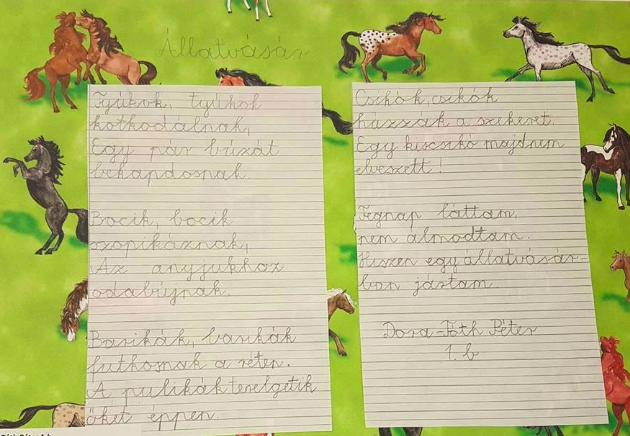 Állatvásár
Tyúkok, tyúkok
kotkodálnak,
Egy pár búzát
bekapdosnak.
Bocik, bocik
szopikáznak,
Az anyjukhoz
odabújnak.
Barikák, barikák
futkosnak a réten.
A pulikák terelgetik
őket éppen.
Csikók, csikók
húzzák a szekeret.
Egy kiscsikó majdnem
elveszett!
Tegnap láttam,
nem álmodtam.
Hiszen egy állatvásár-
ban jártam.
Dosa-Tóth Péter
1. b